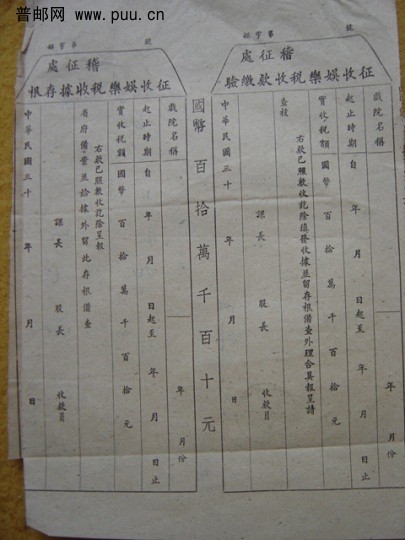 普邮网 www.puu.cn
娛字第 號
稽征處
征收娛樂稅收欵繳驗
戲院名稱 年 月份
起止時期 自 年 月 日起至 年 月 日止
實收稅額 國幣 百 拾 萬 千 百 拾 元
右欵已照數收訖除填發收據並留存根備查外理合具報呈請
查核
課長 股長 收欵員
中華民國三十 年 月 日
國幣 百 拾 萬 千 百 十 元
娛字第 號
稽征處
征收娛樂稅收據存根
戲院名稱 年 月份
起止時期 自 年 月 日起至 年 月 日止
實收稅額 國幣 百 拾 萬 千 百 拾 元
右欵已照數收訖除呈報
省府備查並給據外留此存根備查
課長 股長 收欵員
中華民國三十 年 月 日